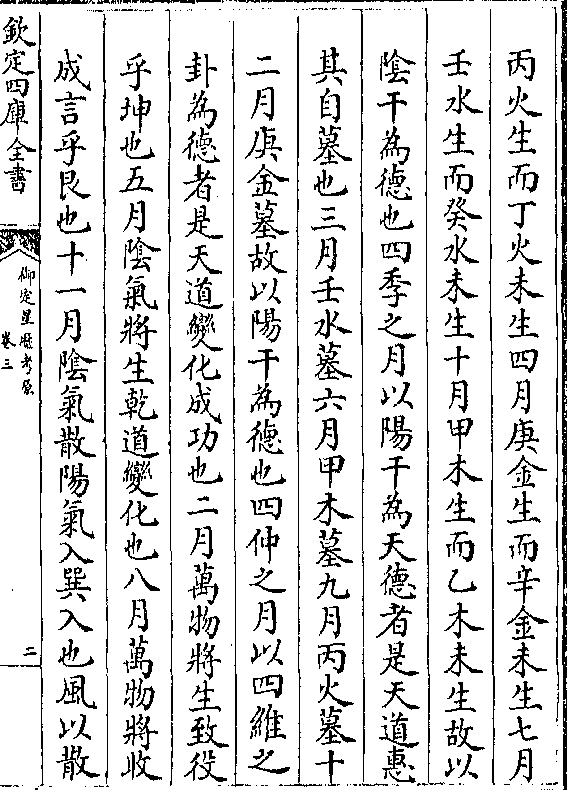 丙火生而丁火未生四月庚金生而辛金未生七月
壬水生而癸水未生十月甲木生而乙木未生故以
陰干為德也四季之月以陽干為天德者是天道惠
其自墓也三月壬水墓六月甲木墓九月丙火墓十
二月庚金墓故以陽干為德也四仲之月以四維之
卦為德者是天道變化成功也二月萬物將生致役
乎坤也五月陰氣將生乾道變化也八月萬物將收
成言乎艮也十一月陰氣散陽氣入巽入也風以散
欽定四庫全書
御定星厯考原
卷三
二